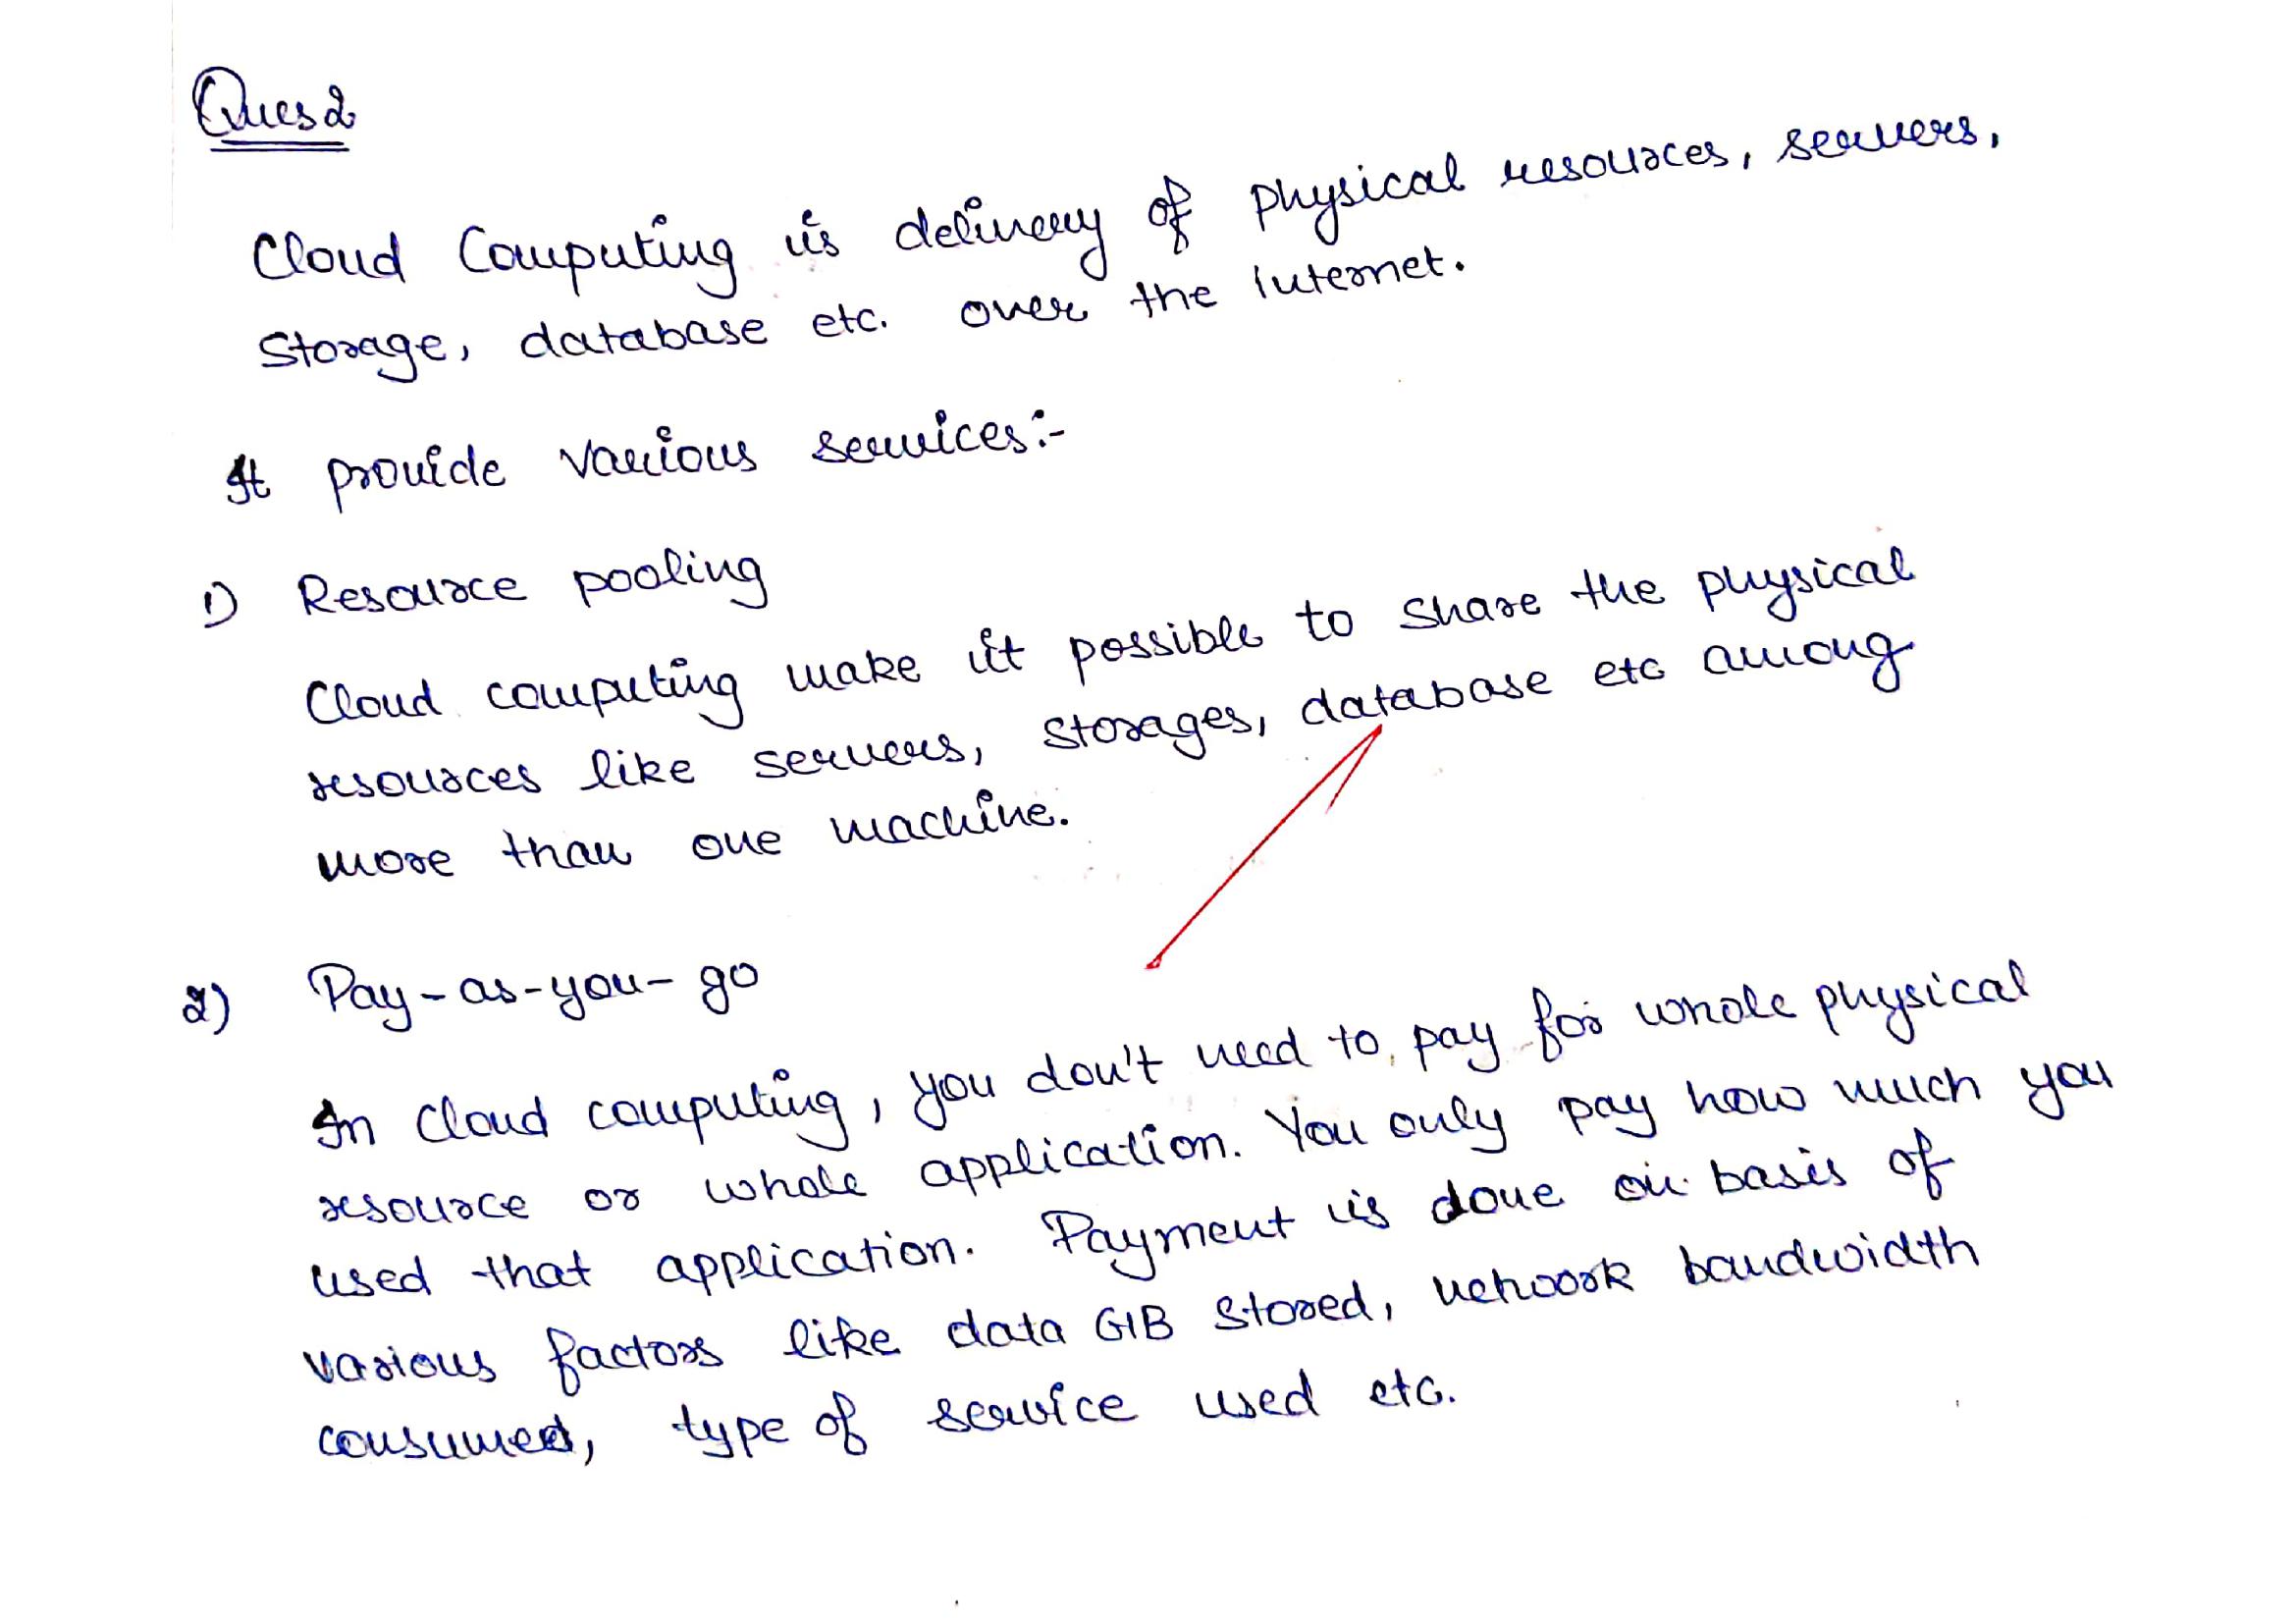 Ques 2
Cloud Computing is delivery of physical resources, servers,
Storage, database etc. over the internet.
It provide various services:-
1) Resource pooling
Cloud computing make it possible to share the physical
resources like servers, storages, database etc among
more than one machine.
2) Pay-as-you-go
In Cloud computing, you don't need to pay for whole physical
resource or whole application. You only pay how much you
used that application. Payment is done on basis of
various factors like data GIB stored, network bandwidth
consumed, type of service used etc.